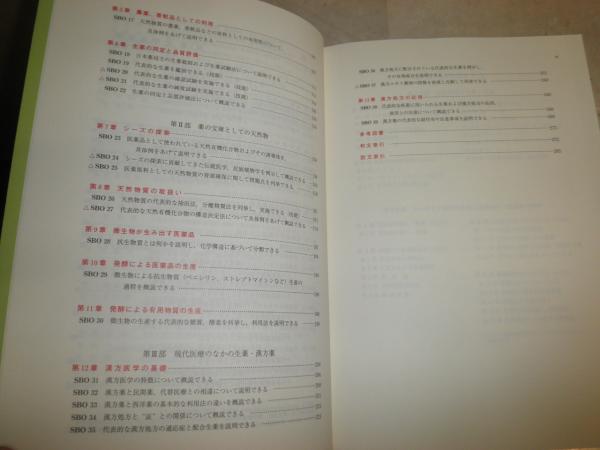 第5章 農薬,香粧品としての利用
SBO 17 天然物質の農薬,香粧品などの原料としての有用性について,
具体例をあげて説明できる
第6章 生薬の同定と品質評価
SBO 18 日本薬局方の生薬総則および生薬試験法について説明できる
SBO 19 代表的な生薬を鑑別できる(技能)
SBO 20 代表的な生薬の確認試験を実施できる(技能)
SBO 21 代表的な生薬の純度試験を実施できる(技能)
SBO 22 生薬の同定と品質評価法について概説できる
第Ⅱ部 薬の宝庫としての天然物
第7章 シーズの探索
SBO 23 医薬品として使われている天然有機化合物およびその誘導体を,
具体例をあげて説明できる
△SBO 24 シーズの探索に貢献してきた伝統医学,民族植物学を例示して概説できる
△SBO 25 医薬原料としての天然物質の資源確保に関して問題点を列挙できる
第8章 天然物質の取扱い
SBO 26 天然物質の代表的な抽出法,分離精製法を列挙し,実施できる(技能)
△SBO 27 代表的な天然有機化合物の構造決定法について具体例をあげて概説できる
第9章 微生物が生み出す医薬品
SBO 28 抗生物質とは何かを説明し,化学構造に基づいて分類できる
第10章 発酵による医薬品の生産
SBO 29 微生物による抗生物質(ペニシリン,ストレプトマイシンなど)生産の
過程を概説できる
第11章 発酵による有用物質の生産
SBO 30 微生物の生産する代表的な糖質,酵素を列挙し,利用法を説明できる
第Ⅲ部 現代医療のなかの生薬・漢方薬
第12章 漢方医学の基礎
SBO 31 漢方医学の特徴について概説できる
SBO 32 漢方薬と民間薬,代替医療との相違について説明できる
SBO 33 漢方薬と西洋薬の基本的な利用法の違いを概説できる
SBO 34 漢方処方と“証”との関係について概説できる
SBO 35 代表的な漢方処方の適応症と配合生薬を説明できる
SBO 36 漢方処方に配合されている代表的な生薬を例示し,
その有効成分を説明できる
第13章 漢方処方の応用
参考図書
和文索引
欧文索引